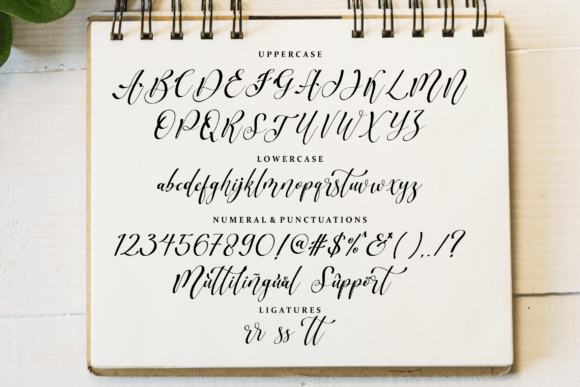 UPPERCASE
ABCDEFGHIJKLMN
OPQRSTUVWXYZ
LOWERCASE
abcdefghijklmnopqrstuvwxyz
NUMERAL & PUNCTUATIONS
1234567890!@#$%^&*(),./?
Mùltilíñgúâl Sûppört
LIGATURES
rr ss tt